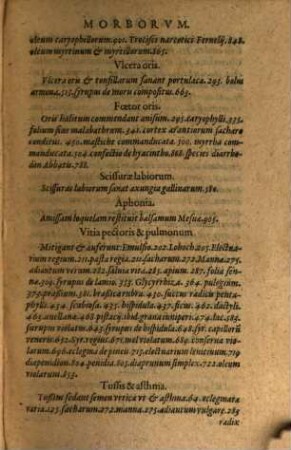 MORBORVM.
oleum caryophillorum. 920. Trocisci narcotici Fernelij. 848.
oleum myrtinum & myricetorum. 865.
Vlcera oris.
Vlcera oris & tonsillarum sanant portulaca. 295. bolus
armena. 515. syrupus de moris compositus. 665.
Fœtor oris.
Oris halitum commendant anisum. 295. caryophylli. 335.
folium siue malabathrum. 341. cortex arantiorum sacharo
conditus. 450. mastiche commanducata. 300. myrrha com-
menducata. 304. confectio de hyacintho. 868. species diarrho-
don Abbatu. 788.
Scissuræ labiorum.
Scissuras labiorum sanat axungia gallinarum. 580.
Aphonia.
Amissam loquelam restituit balsamum Mesuæ. 905.
Vitia pectoris & pulmonum.
Mitigant & auferunt: Emulsio. 202. Lohoch. 205. Electua-
rium regium. 211. pasta regia. 211. sacharum. 272. Manna. 275.
adiantum verum. 282. saluia vita. 285. apium. 287. folia sē-
næ. 309. syrupus de lamio. 355. Glycyrrhiza. 364. pulegium.
375. prassium. 380. brassica rubra. 430. succus radicum penta-
phylli. 494. scabiosa. 495. hispidula. 497. ficus. 462. dactyli.
463. auellana. 468. pistacy. ibid. grana iuniperi. 474. Iuc. 585.
syrupus violatum. 643. syrupus de hispidula. 648. syr. capillorū
veneris. 652. Syr. regius. 671. mel violatum. 689. conserua viola-
rum. 696. eclegma de pineis 717. electuarium leniuum. 719
diapenidion. 804. penidia. 803. diaprunum simplex. 722. oleum
violarum. 855.
Tussis & asthma.
Tussim sedant semen vrticæ vt & asthma. 64. eclegmata
varia. 125. sacharum. 272. manna. 275. adiantum vulgare. 283
radix